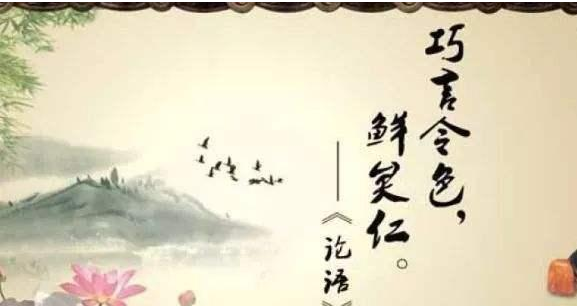 巧言令色，
鲜矣仁。
——《论语》